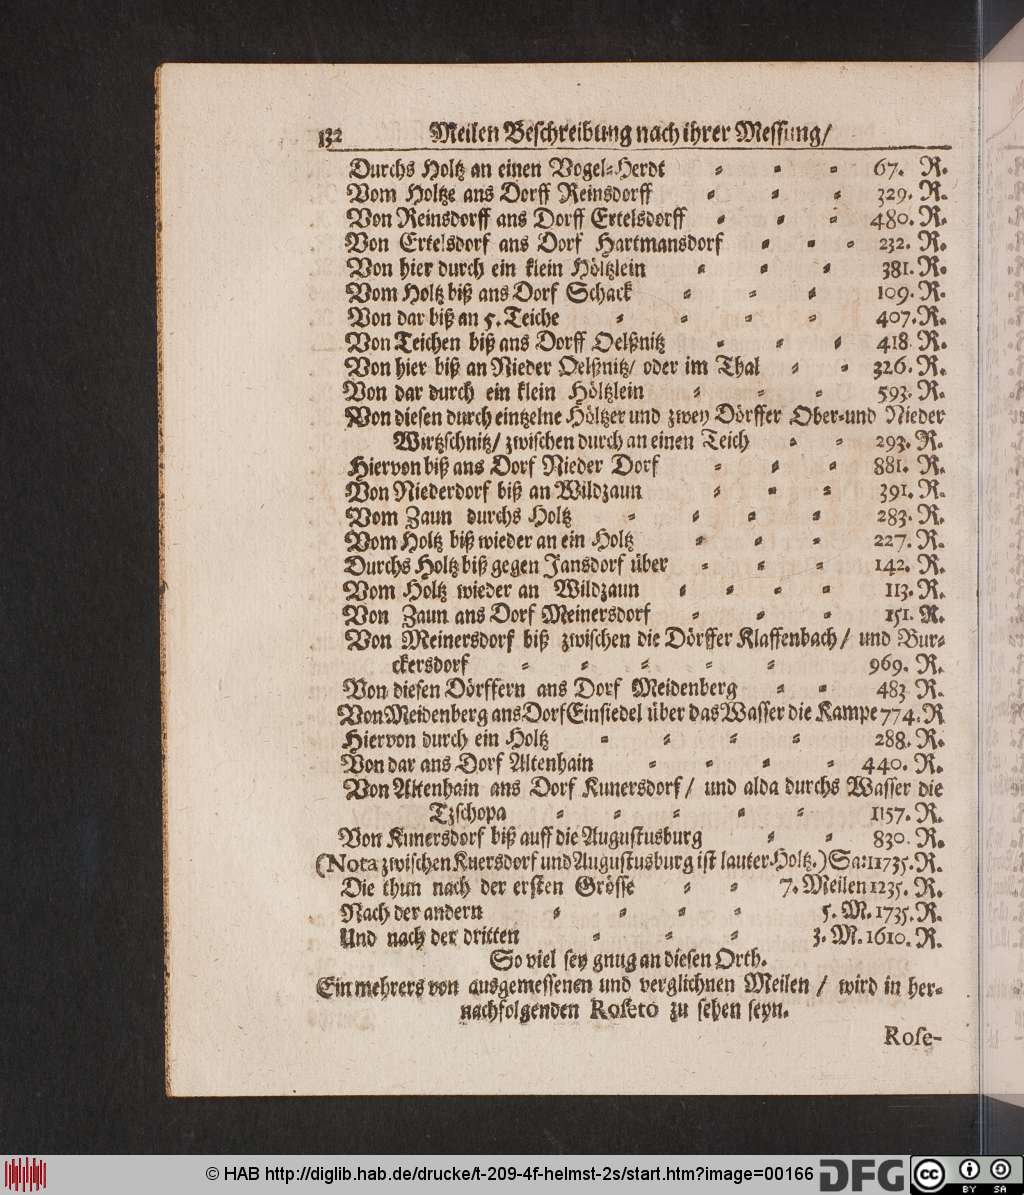 132 Meilen Beschreibung nach ihrer Messung/
Durchs Holtz an einen Vogel-Herdt - - - 67. R.
Vom Holtze ans Dorff Reinsdorff - - - 329. R.
Von Reinsdorff ans Dorff Ertelsdorff - - - 480. R.
Von Ertelsdorf ans Dorf Hartmansdorf - - - 232. R.
Von hier durch ein klein Höltzlein - - - 381. R.
Vom Holtz biß ans Dorf Schack - - - 109. R.
Von dar biß an 5. Teiche - - - - 407. R.
Von Teichen biß ans Dorff Oelßnitz - - - 418 R.
Von hier biß an Nieder Oelßnitz/ oder im Thal - - 326. R.
Von dar durch ein klein Höltzlein - - - 593. R.
Von diesen durch eintzelne Höltzer und zwey Dörffer Ober-und Nieder
Wirtzschnitz/ zwischen durch an einen Teich - - 293. R.
Hiervon biß ans Dorf Nieder Dorf - - - 881. R.
Von Niederdorf biß an Wildzaun - - - 391. R.
Vom Zaun durchs Holtz - - - - 283. R.
Vom Holtz biß wieder an ein Holtz - - - 227. R.
Durchs Holtz biß gegen Jansdorf über - - - 142. R.
Vom Holtz wieder an Wildzaun - - - - 113. R.
Von Zaun ans Dorf Meinersdorf - - - 151. R.
Von Meinersdorf biß zwischen die Dörffer Klaffenbach/ und Bur-
ckersdorf - - - - - 969. R.
Von diesen Dörffern ans Dorf Meidenberg - - 483 R.
Von Meidenberg ans Dorf Einsiedel über das Wasser die Kampe 774. R
Hiervon durch ein Holtz - - - - 288. R.
Von dar ans Dorf Altenhain - - - - 440. R.
Von Altenhain ans Dorf Kunersdorf/ und alda durchs Wasser die
Tzschopa - - - - - 1157. R.
Von Kunersdorf biß auff die Augustusburg - - 830. R.
(Nota zwischen Kuersdorf und Augustusburg ist lauter Holtz.) Sa: 11735. R.
Die thun nach der ersten Grösse - - 7. Meilen 1235. R.
Nach der andern - - - - 5. M. 1735. R.
Und nach der dritten - - - 3. M. 1610. R.
So viel sey gnug an diesen Orth.
Ein mehrers von ausgemessenen und verglichnen Meilen / wird in her-
nachfolgenden Roseto zu sehen seyn.
Rose-
© HAB http://diglib.hab.de/drucke/t-209-4f-helmst-2s/start.htm?image=00166 DFG cc BY SA